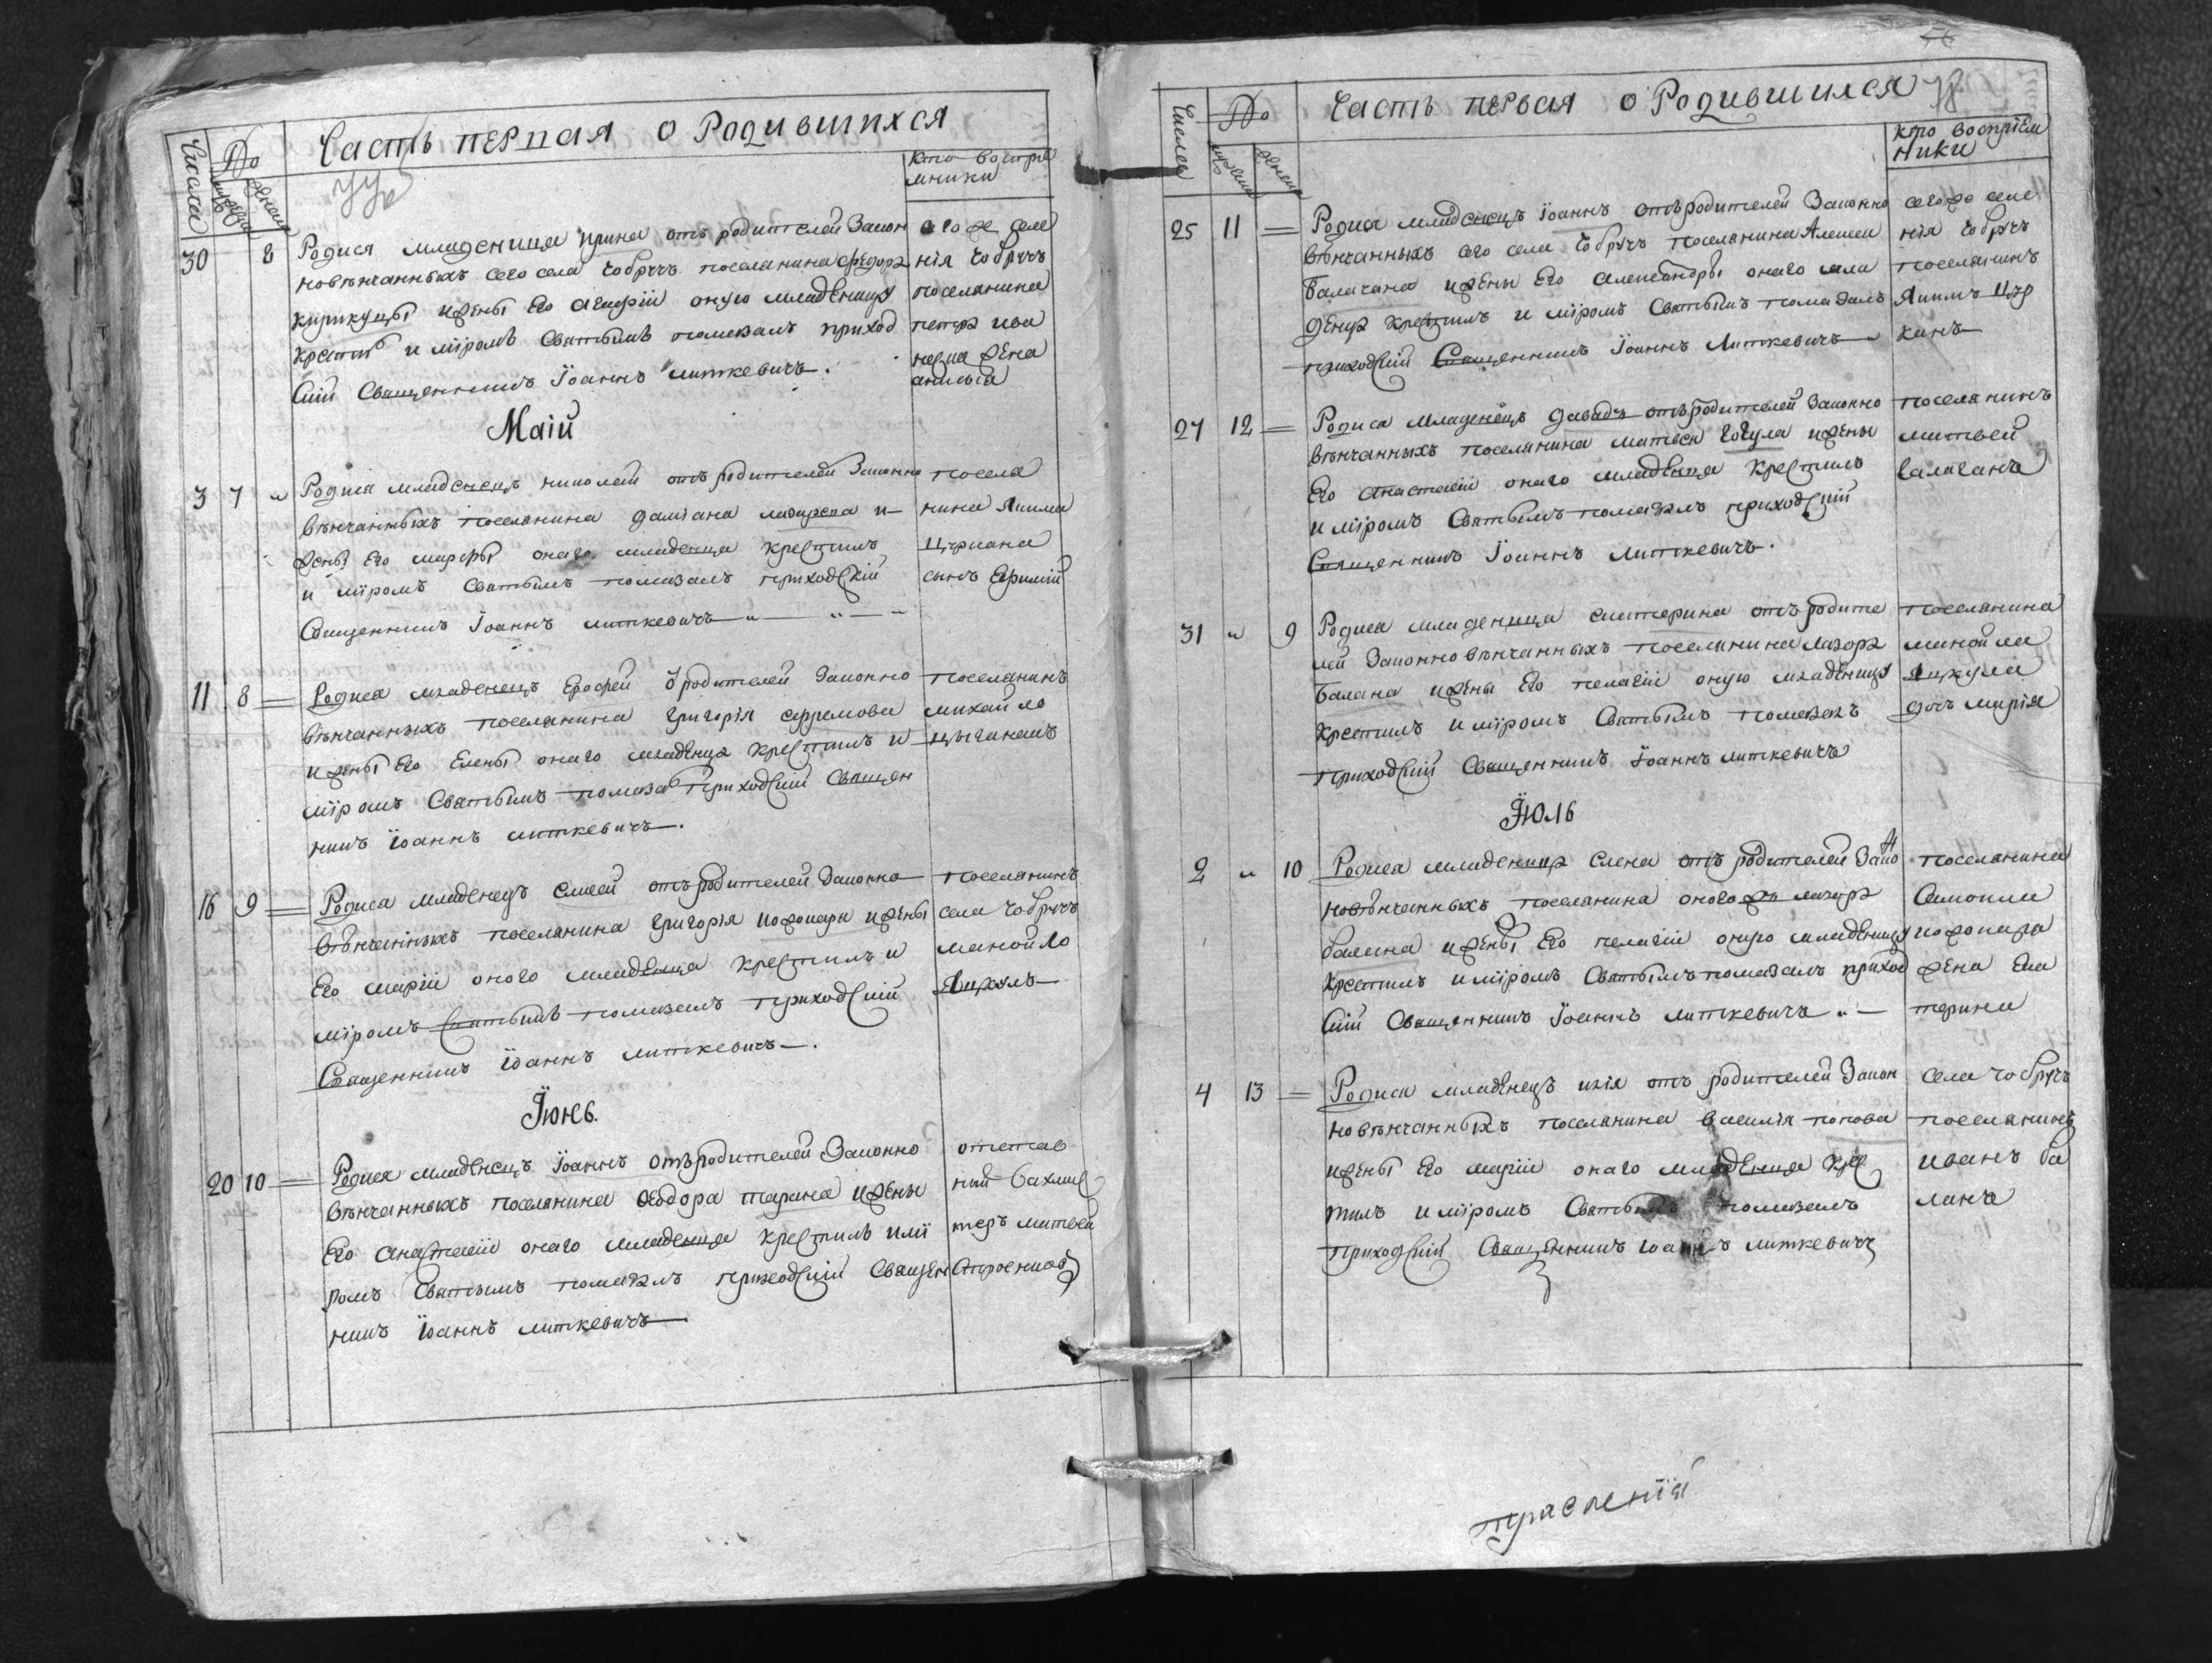 Часть первая о Родившихся
Числа
По
мужеска
женска
Кто воспрiе
мники
30 8 Родися младеница Ирина отъ родителей Закон
новѣнчанныхъ сего села Чобручъ поселанина Федора
Кирикуцы и жены его Агафiи оную младеницу
крести и мiромъ Святымъ помазалъ приход
скiй Священникъ Iоаннъ Литкевичъ.
сего же селе
нiя Чобручъ
поселанина
петра ива
жена
Маiй
3 7 Родися младенецъ николай отъ родителей Законно
вѣнчанныхъ поселанина дамiана и
жены Его марфы онаго младенца крестилъ
и мiромъ Святымъ помазалъ приходскiй
Священникъ Iоаннъ литкевичъ
посела
нина Якима
сынъ Ефимiй
11 8 Родися младенецъ Ерофей родителей Законно
вѣнчанныхъ поселанина григорiя ефремова
и жены Его Елены онаго младенца крестилъ и
мiромъ Святымъ помаза приходскiй Священ
никъ Iоаннъ литкевичъ.
поселанинъ
михайло
цыганашъ
16 9 Родися младенецъ Елисей отъ родителей Законно
вѣнченныхъ поселанина григорiя кожокаря и жены
Его марiи оного младенца крестилъ и
мiромъ Святымъ помазалъ приходскiй
Священникъ Iоаннъ литкевичъ.
поселанинъ
села чобручъ
манойло
Iюнь.
20 10 Родися младенецъ Iоаннъ отъ родителей Законно
вѣнчанныхъ поселанина Ѳеодора тарана и жены
Его анастасiи онаго младенца крестилъ и мi
ромъ Святымъ помазалъ приходскiй Священ
никъ Iоаннъ литкевичъ
отстав
ный вахмис
теръ матвей
Часть первая о Родившихся
Числа
По
мужеска
женска
Кто воспрiем
ники
25 11 Родися младенецъ Iоаннъ отъ родителей Законно
вѣнчанныхъ сего села Чобручъ поселанина Алексея
Балагана и жены Его александры онаго мла
денца крестилъ и мiромъ Святымъ помазалъ
приходскiй Священникъ Iоаннъ Литкевичъ
сего же селе
нiя Чобручъ
поселанинъ
Якимъ Цур
канъ
27 12 Родися младенецъ давадъ отъ родителей Законно
вѣнчанныхъ поселанина матвея гогула и жены
Его анастасiи онаго младенца крестилъ
и мiромъ Святымъ помазалъ приходскiй
Священникъ Iоаннъ литкевичъ.
поселанинъ
матвей
балаганъ
31 9 Родися младеница екатерина отъ родите
лей Законновѣнчанныхъ поселанина лазора
балана и жены Его пелагiи оную младеницу
крестилъ и мiромъ Святымъ помазалъ
приходскiй Священникъ Iоаннъ литкевичъ
поселанина
манойла
дочь марiя
Iюль
2 10 Родися младеница елена отъ родителей Зако
новѣнчанныхъ поселанина оного же лазора
балана и жены Его пелагiи оную младеницу
крестилъ и мiромъ Святымъ помазалъ приход
скiй Священникъ Iоаннъ литкевичъ
поселанина
Симiона
кожокаря
жена Ека
терина
4 13 Родися младенецъ илiя отъ родителей Закон
новѣнчанныхъ поселанина василiя попова
и жены Его марiи онаго младенца крес
тилъ и мiромъ Святымъ помазалъ
приходскiй Священникъ Iоаннъ литкевичъ
села чобручъ
поселанинъ
иванъ ба
ланъ